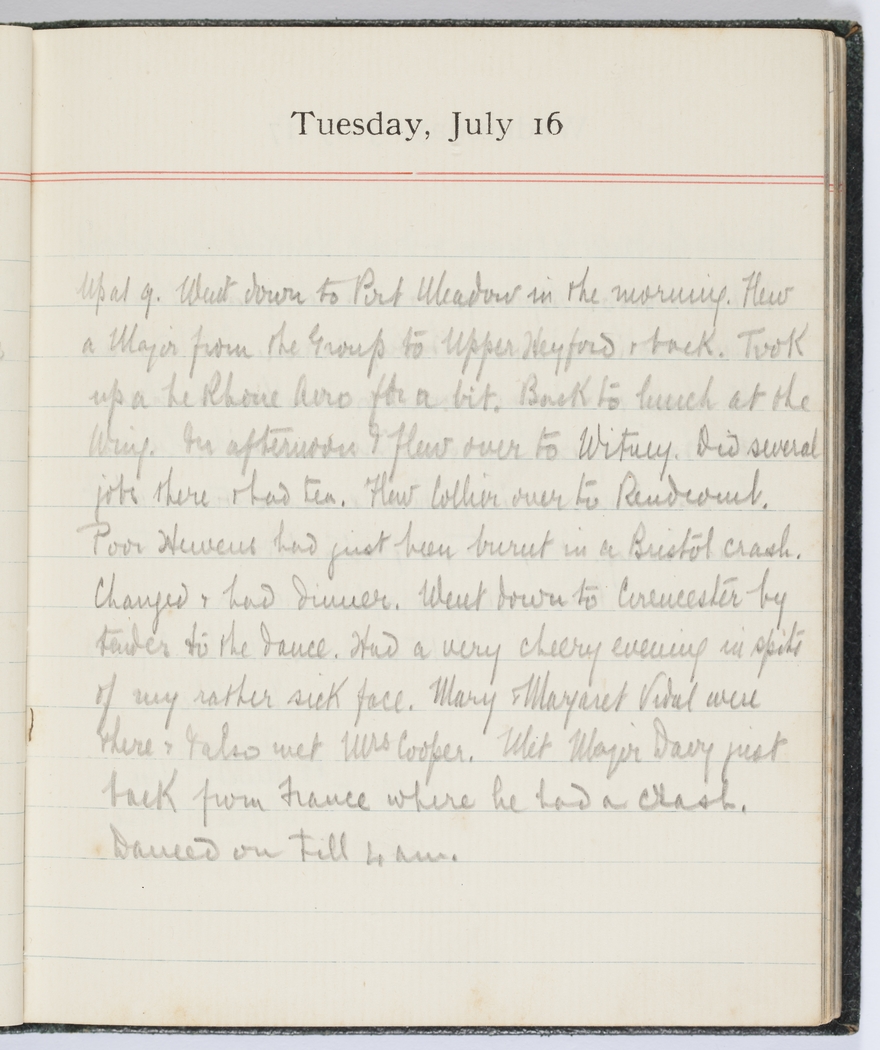 Tuesday, July 16
Up at 9. Went down to Port Meadow in the morning. Flew
a Major from the Group to Upper Heyford & back. Took
up a Le Rhone Avro for a bit. Back to lunch at the
Wing. In afternoon I flew over to Witney. Did several
jobs there & had tea. Flew Collier over to Rendcomb.
Poor had just been burnt in a Bristol crash.
Changed & had dinner. Went down to Cirencester by
tender to the dance. Had a very cheery evening in spite
of my rather sick face. Mary & Margaret Vidal were
there & I also met Mrs Cooper. Met Major Davy just
back from France where he had a crash.
Danced on till 4 am.